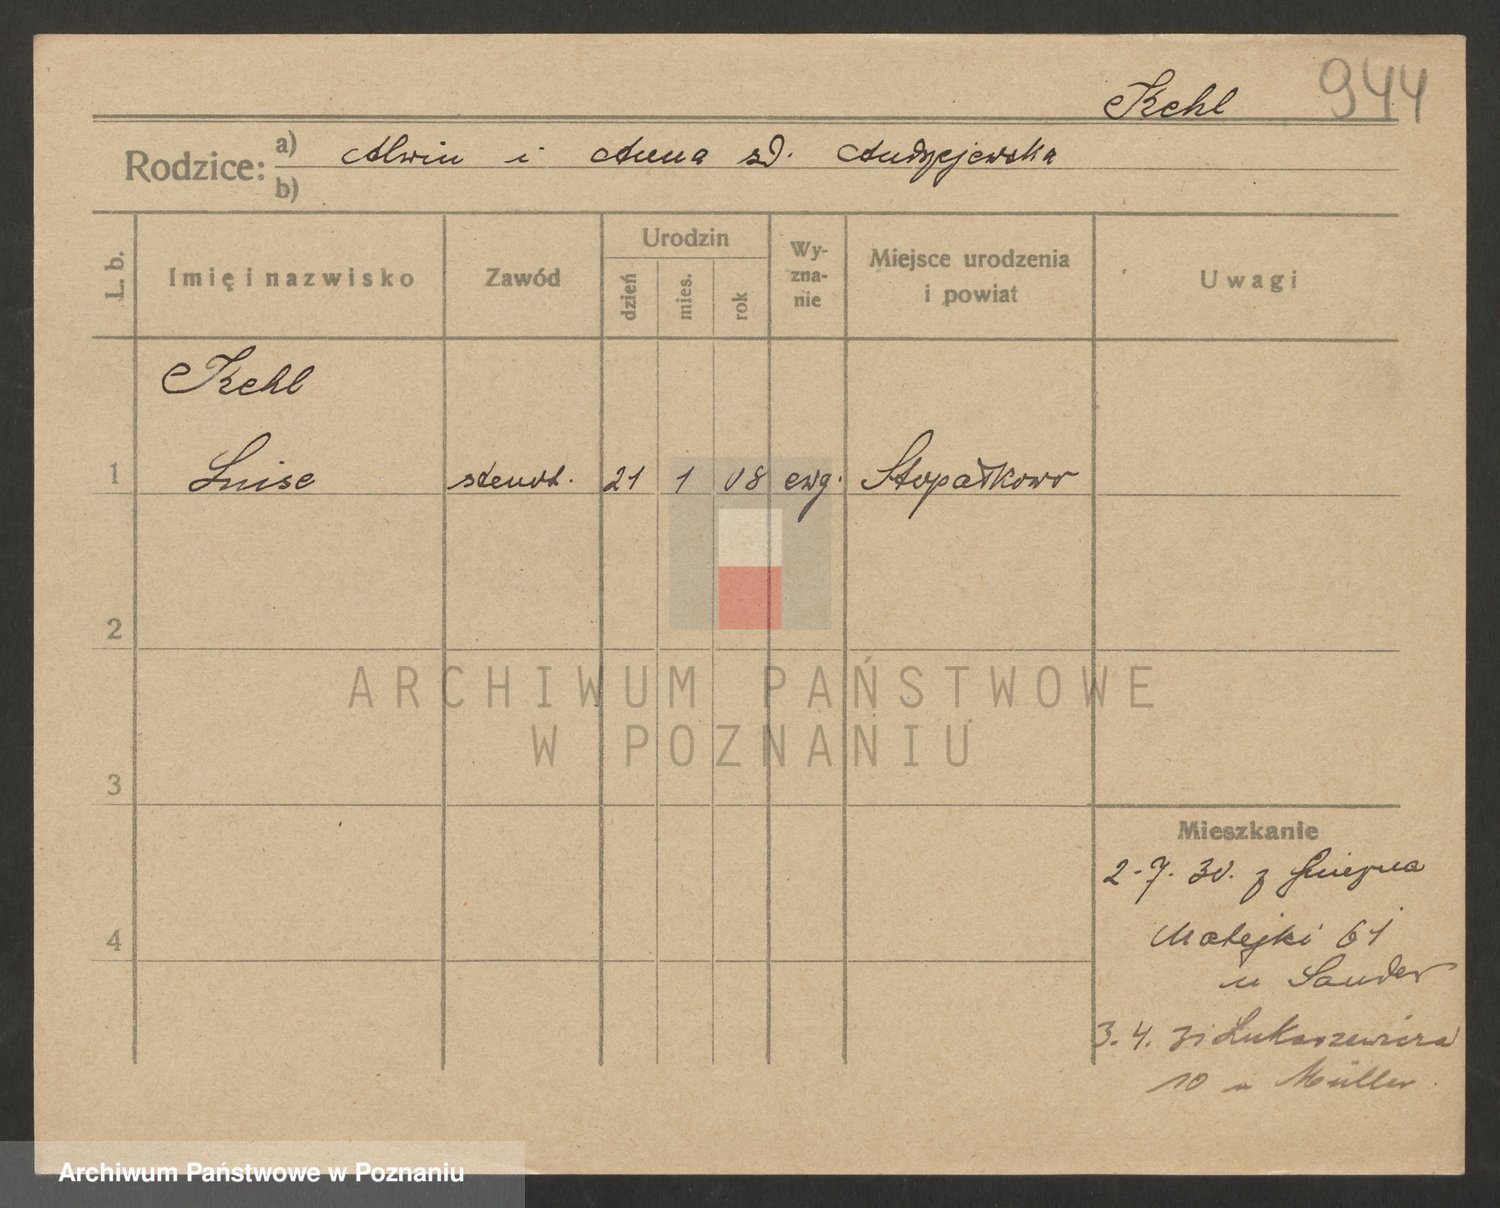 Kehl 944
Rodzice: a) Alwin i Anna zd. Andrzejewska
b)
L. b.
Imię i nazwisko
Zawód
Urodzin
dzień
mies.
rok
Wy-
zna-
nie
Miejsce urodzenia
i powiat
Uwagi
Kehl
1 Luise stenot. 21 1 08 ewg. Stopałkowo
2
3
4
ARCHIWUM PAŃSTWOWE
W POZNANIU
Mieszkanie
2-7. 30. z Gniezna
Matejki 61
u Sander
3. 4. 31 Łukaszewicza
10 u Müller.
Archiwum Państwowe w Poznaniu